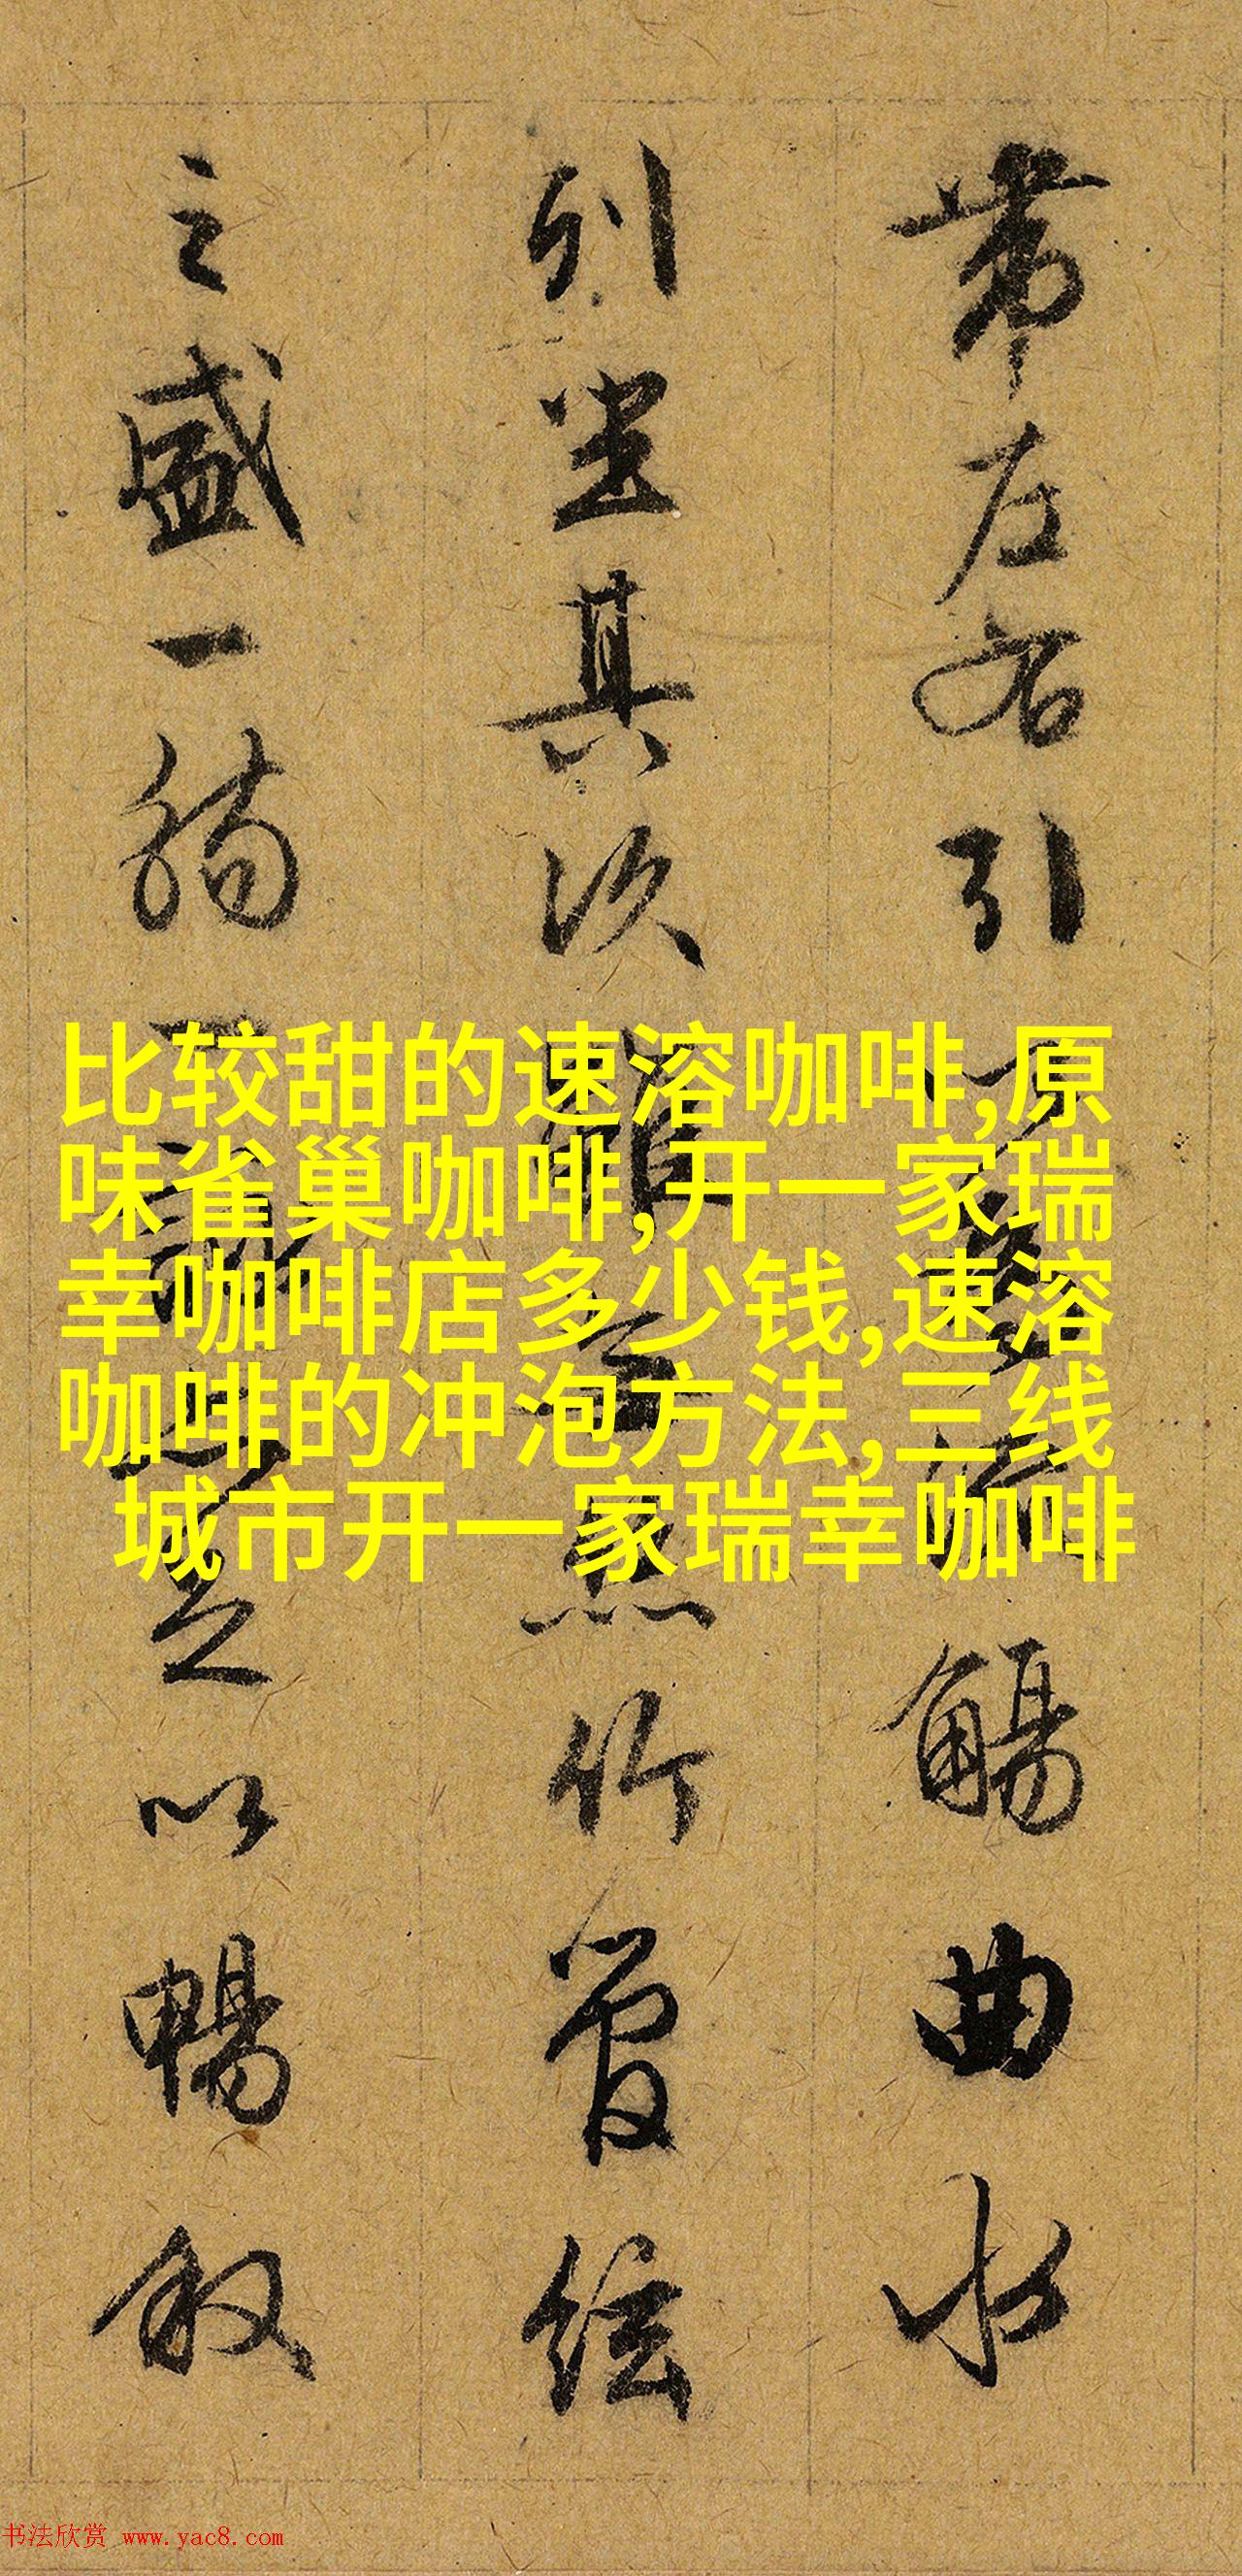 帶左右引以為流觴曲水
列坐其次雖無絲竹管絃
之盛一觴一詠亦足以暢敘
比较甜的速溶咖啡,原
味雀巢咖啡,开一家瑞
幸咖啡店多少钱,速溶
咖啡的冲泡方法,三线
城市开一家瑞幸咖啡
书法欣赏 www.yac8.com